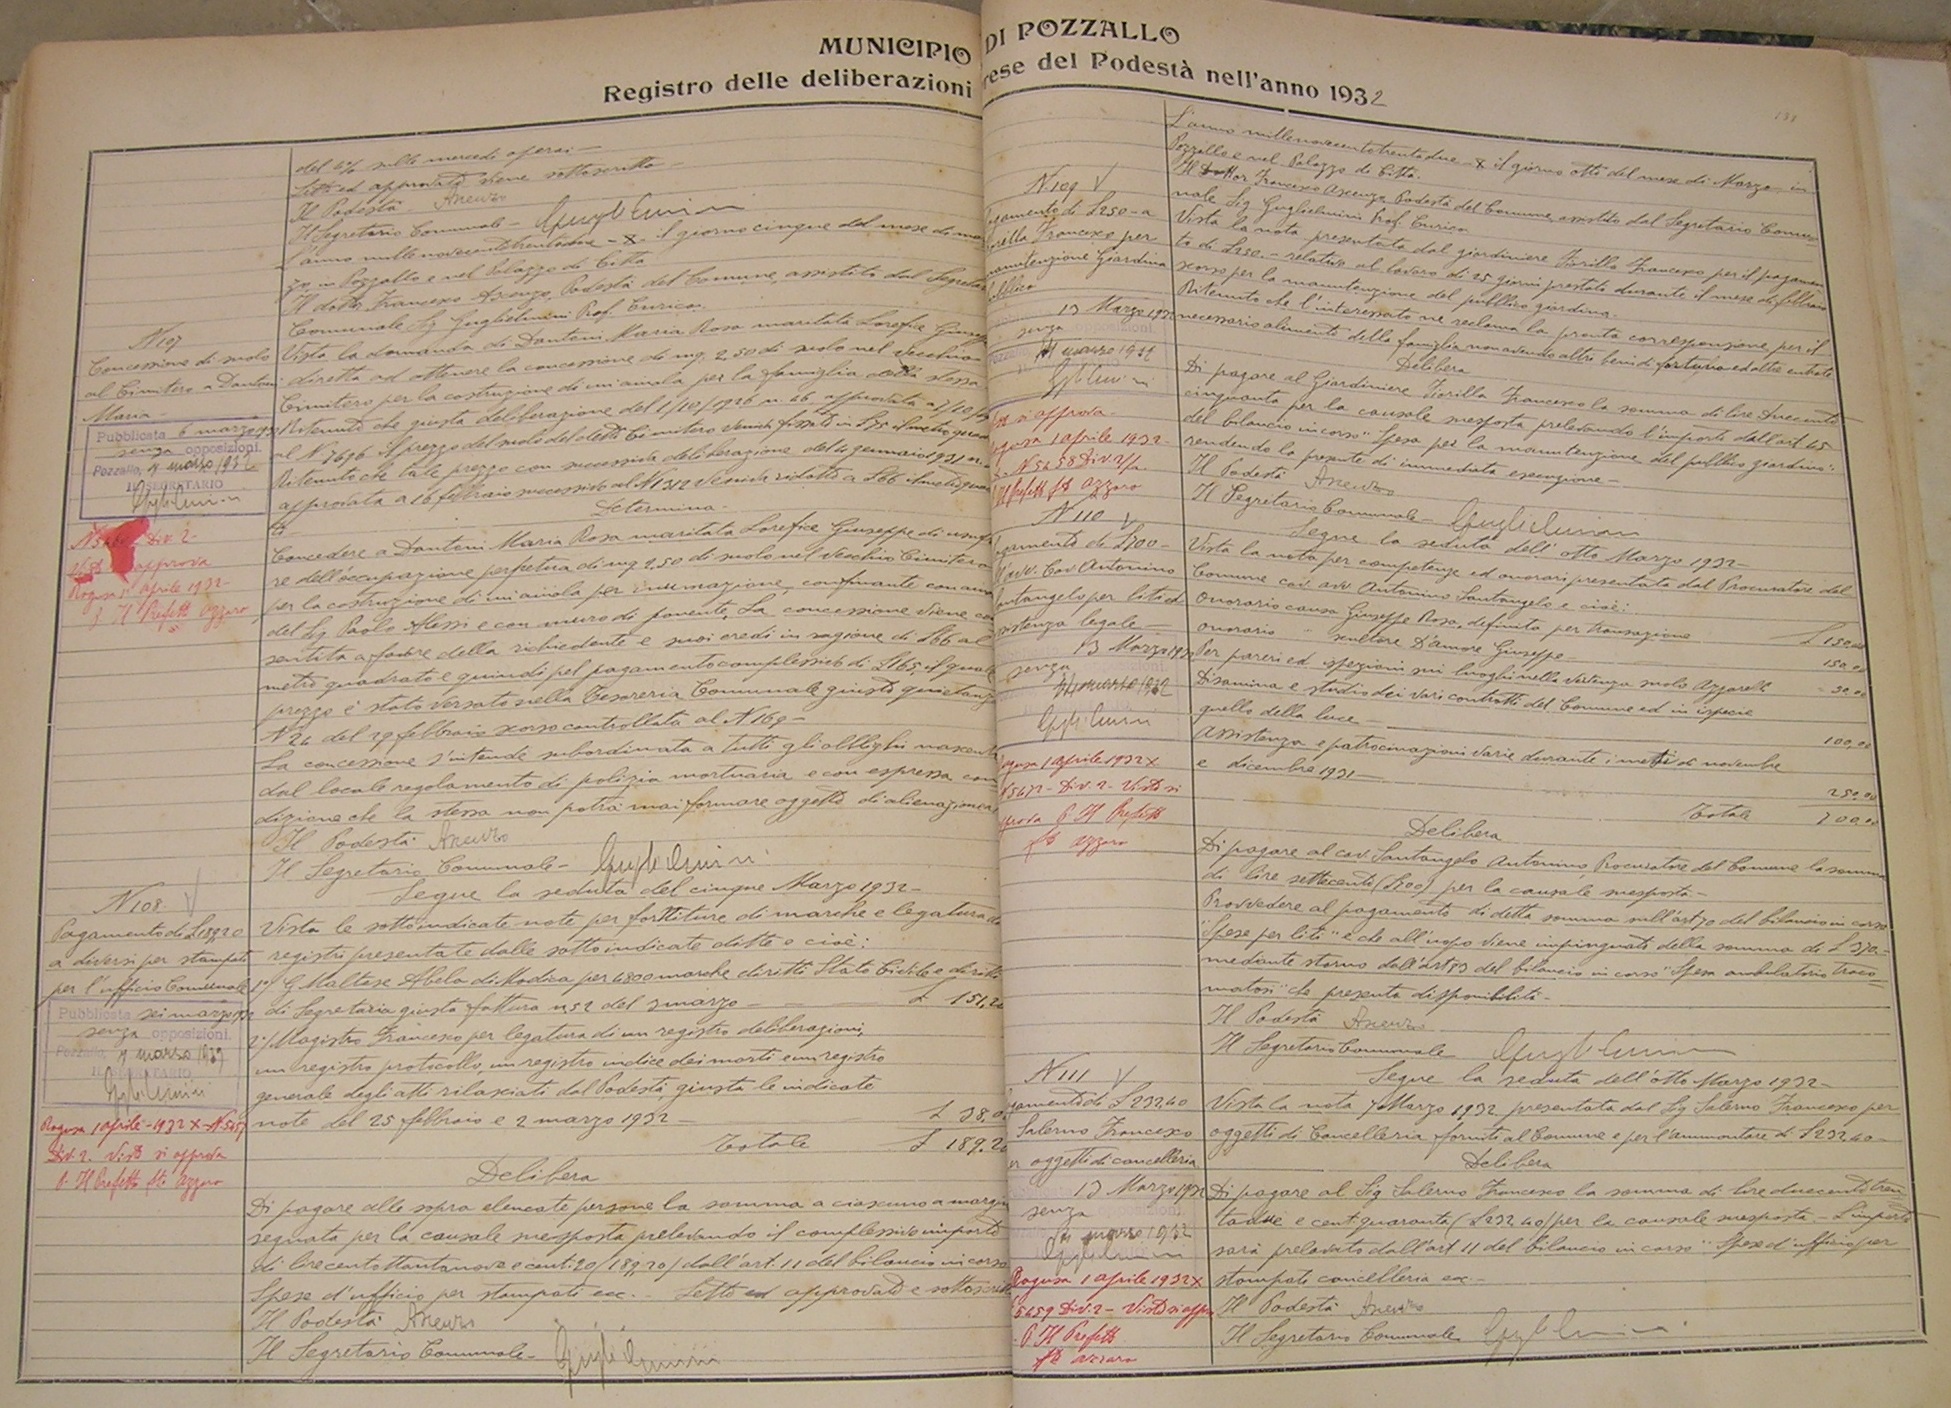 MUNICIPIO DI POZZALLO
Registro delle deliberazioni prese del Podestà nell'anno 1932
del 2% sulle mercedi operai -
Letto ed approvato viene sottoscritto -
Il Podestà
Il Segretario Comunale - Guglielmini
L'anno millenovecentotrentadue - X - il giorno cinque del mese di mar
zo, in Pozzallo e nel Palazzo di Città
Il dottor Francesco Podestà del Comune, assistito dal Segretario
Comunale Sig Guglielmini Prof. Enrico.
N 107
Concessione di suolo
al Cimitero a Dantoni
Maria -
Pubblicata 6 marzo 1932
senza opposizioni.
Pozzallo, 7 marzo 1932
IL SEGRETARIO
Guglielmini
Div. 2 -
Visto si approva
Ragusa 1 Aprile 1932 -
p Il Prefetto Azzaro
Vista la domanda di Dantoni Maria Rosa maritata Lorefice Giuseppe
diretta ad ottenere la concessione di mq. 2.50 di suolo nel vecchio
Cimitero per la costruzione di un'aiuola per la famiglia della stessa
Ritenuto che giusta deliberazione del 1/10/1926 n. 26 approvata
al N 7676 il prezzo del suolo del detto Cimitero venne fissato in L 75 il metro quadrato
Ritenuto che tale prezzo con successiva deliberazione del 4 gennaio 1931
approvata a 16 febbraio successivo al N 312 veniva ridotto a L 66 il metro quadra
to -
Determina -
Concedere a Dantoni Maria Rosa maritata Lorefice Giuseppe di
re dell'occupazione perpetua di mq 2,50 di suolo nel Vecchio Cimitero
per la costruzione di un'aiuola per inumazione, confinante con
del Sig. Paolo Alessi e con muro di ponente. La concessione viene con
sentita a favore della richiedente e suoi eredi in ragione di L 66 al
metro quadrato e quindi pel pagamento complessivo di L 165, il quale
prezzo è stato versato nella Tesoreria Comunale giusta quietanza
N 24 del 29 febbraio scorso controllata al N 169 -
La concessione s'intende subordinata a tutti gli obblighi nascenti
dal locale regolamento di polizia mortuaria e con espressa con
dizione che la stessa non potrà mai formare oggetto di alienazione
Il Podestà
Il Segretario Comunale - Guglielmini
Segue la seduta del cinque Marzo 1932 -
N 108
Pagamento di L 189,20
a diversi per stampati
per l'ufficio Comunale
Pubblicata sei marzo 1932
senza opposizioni.
Pozzallo, 7 marzo 1932
IL SEGRETARIO
Guglielmini
Ragusa 1 aprile - 1932 X - N 5457
Div. 2. Visto si approva
p. Il Prefetto fto Azzaro
Viste le sotto indicate note per forniture di marche e legatura di
registri presentate dalle sotto indicate ditte e cioè:
1°/ G. Maltese Abela di Modica per 4800 marche diritti Stato Civile e diritti
di Segreteria giusta fattura n 52 del 2 marzo - L 151,20
2°/ Magistro Francesco per legatura di un registro deliberazioni,
un registro protocollo, un registro indice dei morti e un registro
generale degli atti rilasciati dal Podestà, giusta le indicate
note del 25 febbraio e 2 marzo 1932 - L 38.00
Totale L 189.20
Delibera
Di pagare alle sopra elencate persone la somma a ciascuno a margine
segnata per la causale suesposta prelevando il complessivo importo
di lire centottantanove e cent. 20 / 189,20 / dall'art. 11 del bilancio in corso
Spese d'ufficio per stampati ecc. - Letto ed approvato e sottoscritto
Il Podestà
Il Segretario Comunale - Guglielmini
L'anno millenovecentotrentadue - X il giorno otto del mese di Marzo, in
Pozzallo e nel Palazzo di Città.
Il Dottor Francesco Podestà del Comune, assistito dal Segretario Comu-
nale Sig Guglielmini Prof. Enrico
N 109
Pagamento di L 250 - a
Fiorilla Francesco per
manutenzione Giardino
pubblico
13 Marzo 1932
senza opposizioni.
14 marzo 1932
Guglielmini
Visto si approva -
Ragusa 1 aprile 1932 -
N 5458 Div. 2/a.
p Il Prefetto fto Azzaro
Vista la nota presentata dal giardiniere Fiorilla Francesco per il pagamen
to di L 250. - relativa al lavoro di 25 giorni prestati durante il mese di febbraio
scorso per la manutenzione del pubblico giardino.
Ritenuto che l'interessato ne reclama la pronta corresponsione per il
necessario alimento della famiglia non avendo altri beni di fortuna ed altre entrate
Delibera
Di pagare al Giardiniere Fiorilla Francesco la somma di lire duecento
cinquanta per la causale suesposta prelevando l'importo dall'art 45
del bilancio in corso "Spesa per la manutenzione del pubblico giardino";
rendendo la presente di immediata esecuzione -
Il Podestà
Il Segretario Comunale - Guglielmini
Segue la seduta dell'otto Marzo 1932 -
N 110
Pagamento di L 700 -
all'avv. Cav Antonino
Santangelo per liti ed
assistenza legale -
13 Marzo 1932
senza
14 marzo 1932
Guglielmini
Ragusa 1 aprile 1932 X
N 5472 - Div. 2 - Visto si
approva P. Il Prefetto
fto Azzaro
Vista la nota per competenze ed onorari presentata dal Procuratore del
Comune cav. avv. Antonino Santangelo e cioè:
Onorario causa Giuseppe Rosa, definita per transazione L 150.00
onorario " scultore D'amore Giuseppe - 150.00
Per pareri ed ispezioni sui luoghi nella vertenza suolo Azzarelli " 50.00
Disamina e studio dei vari contratti del Comune ed in ispecie
quello della luce - 100,00
Assistenza e patrocinazioni varie durante i mesi di novembre
e dicembre 1931 - 250.00
Totale 700,00
Delibera
Di pagare al cav. Santangelo Antonino, Procuratore del Comune la somma
di lire settecento (L 700) per la causale suesposta -
Provvedere al pagamento di detta somma sull'art 70 del bilancio in corso
"Spese per liti" e che all'uopo viene impinguato della somma di L 370. -
mediante storno dall'art 83 del bilancio in corso "Spesa ambulatorio traco-
matosi" che presenta disponibilità -
Il Podestà
Il Segretario Comunale Guglielmini
Segue la seduta dell'otto Marzo 1932 -
N 111
Pagamento di L 232.40
Salerno Francesco
per oggetti di cancelleria
13 Marzo 1932
senza
14 marzo 1932
Guglielmini
Ragusa 1 aprile 1932 X
5459 Div. 2 - Visto si appr
p. Il Prefetto
fto Azzaro
Vista la nota 7 Marzo 1932 presentata dal Sig Salerno Francesco per
oggetti di Cancelleria forniti al Comune e per l'ammontare di L 232.40 -
Delibera
Di pagare al Sig Salerno Francesco la somma di lire duecentotren-
tadue e cent. quaranta (L 232.40) per la causale suesposta - L'importo
sarà prelevato dall'art 11 del bilancio in corso "Spese d'ufficio per
stampati cancelleria ecc -
Il Podestà
Il Segretario Comunale Guglielmini